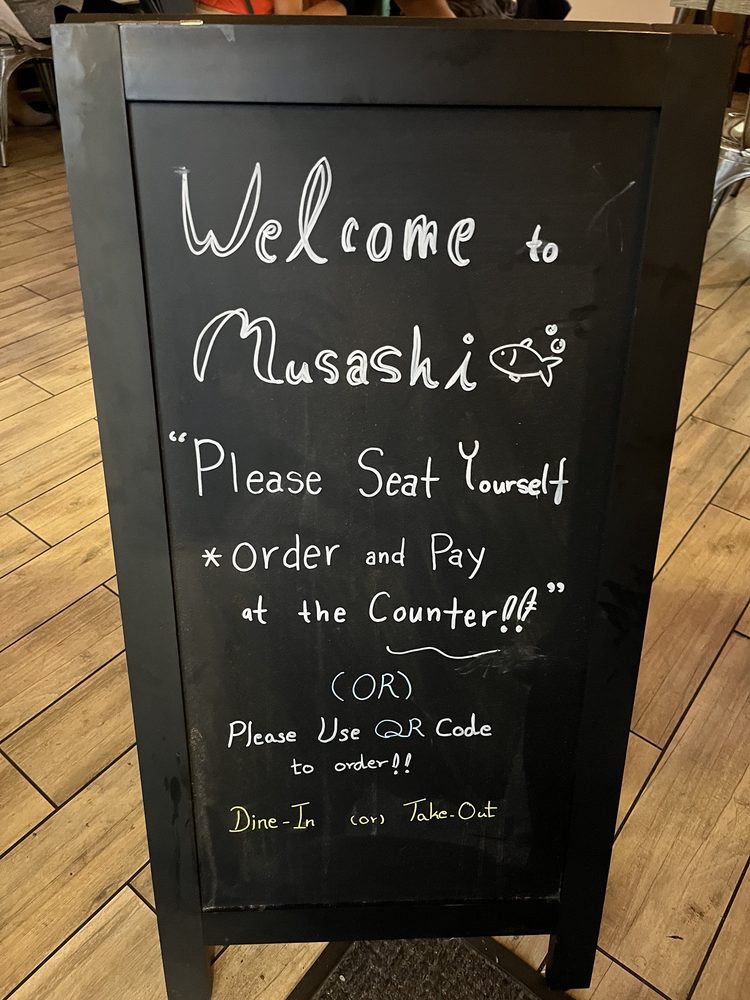 Welcome to
Musashi
“Please Seat Yourself
*Order and Pay
at the Counter!!”
(OR)
Please Use QR Code
to order!!
Dine-In (or) Take-Out